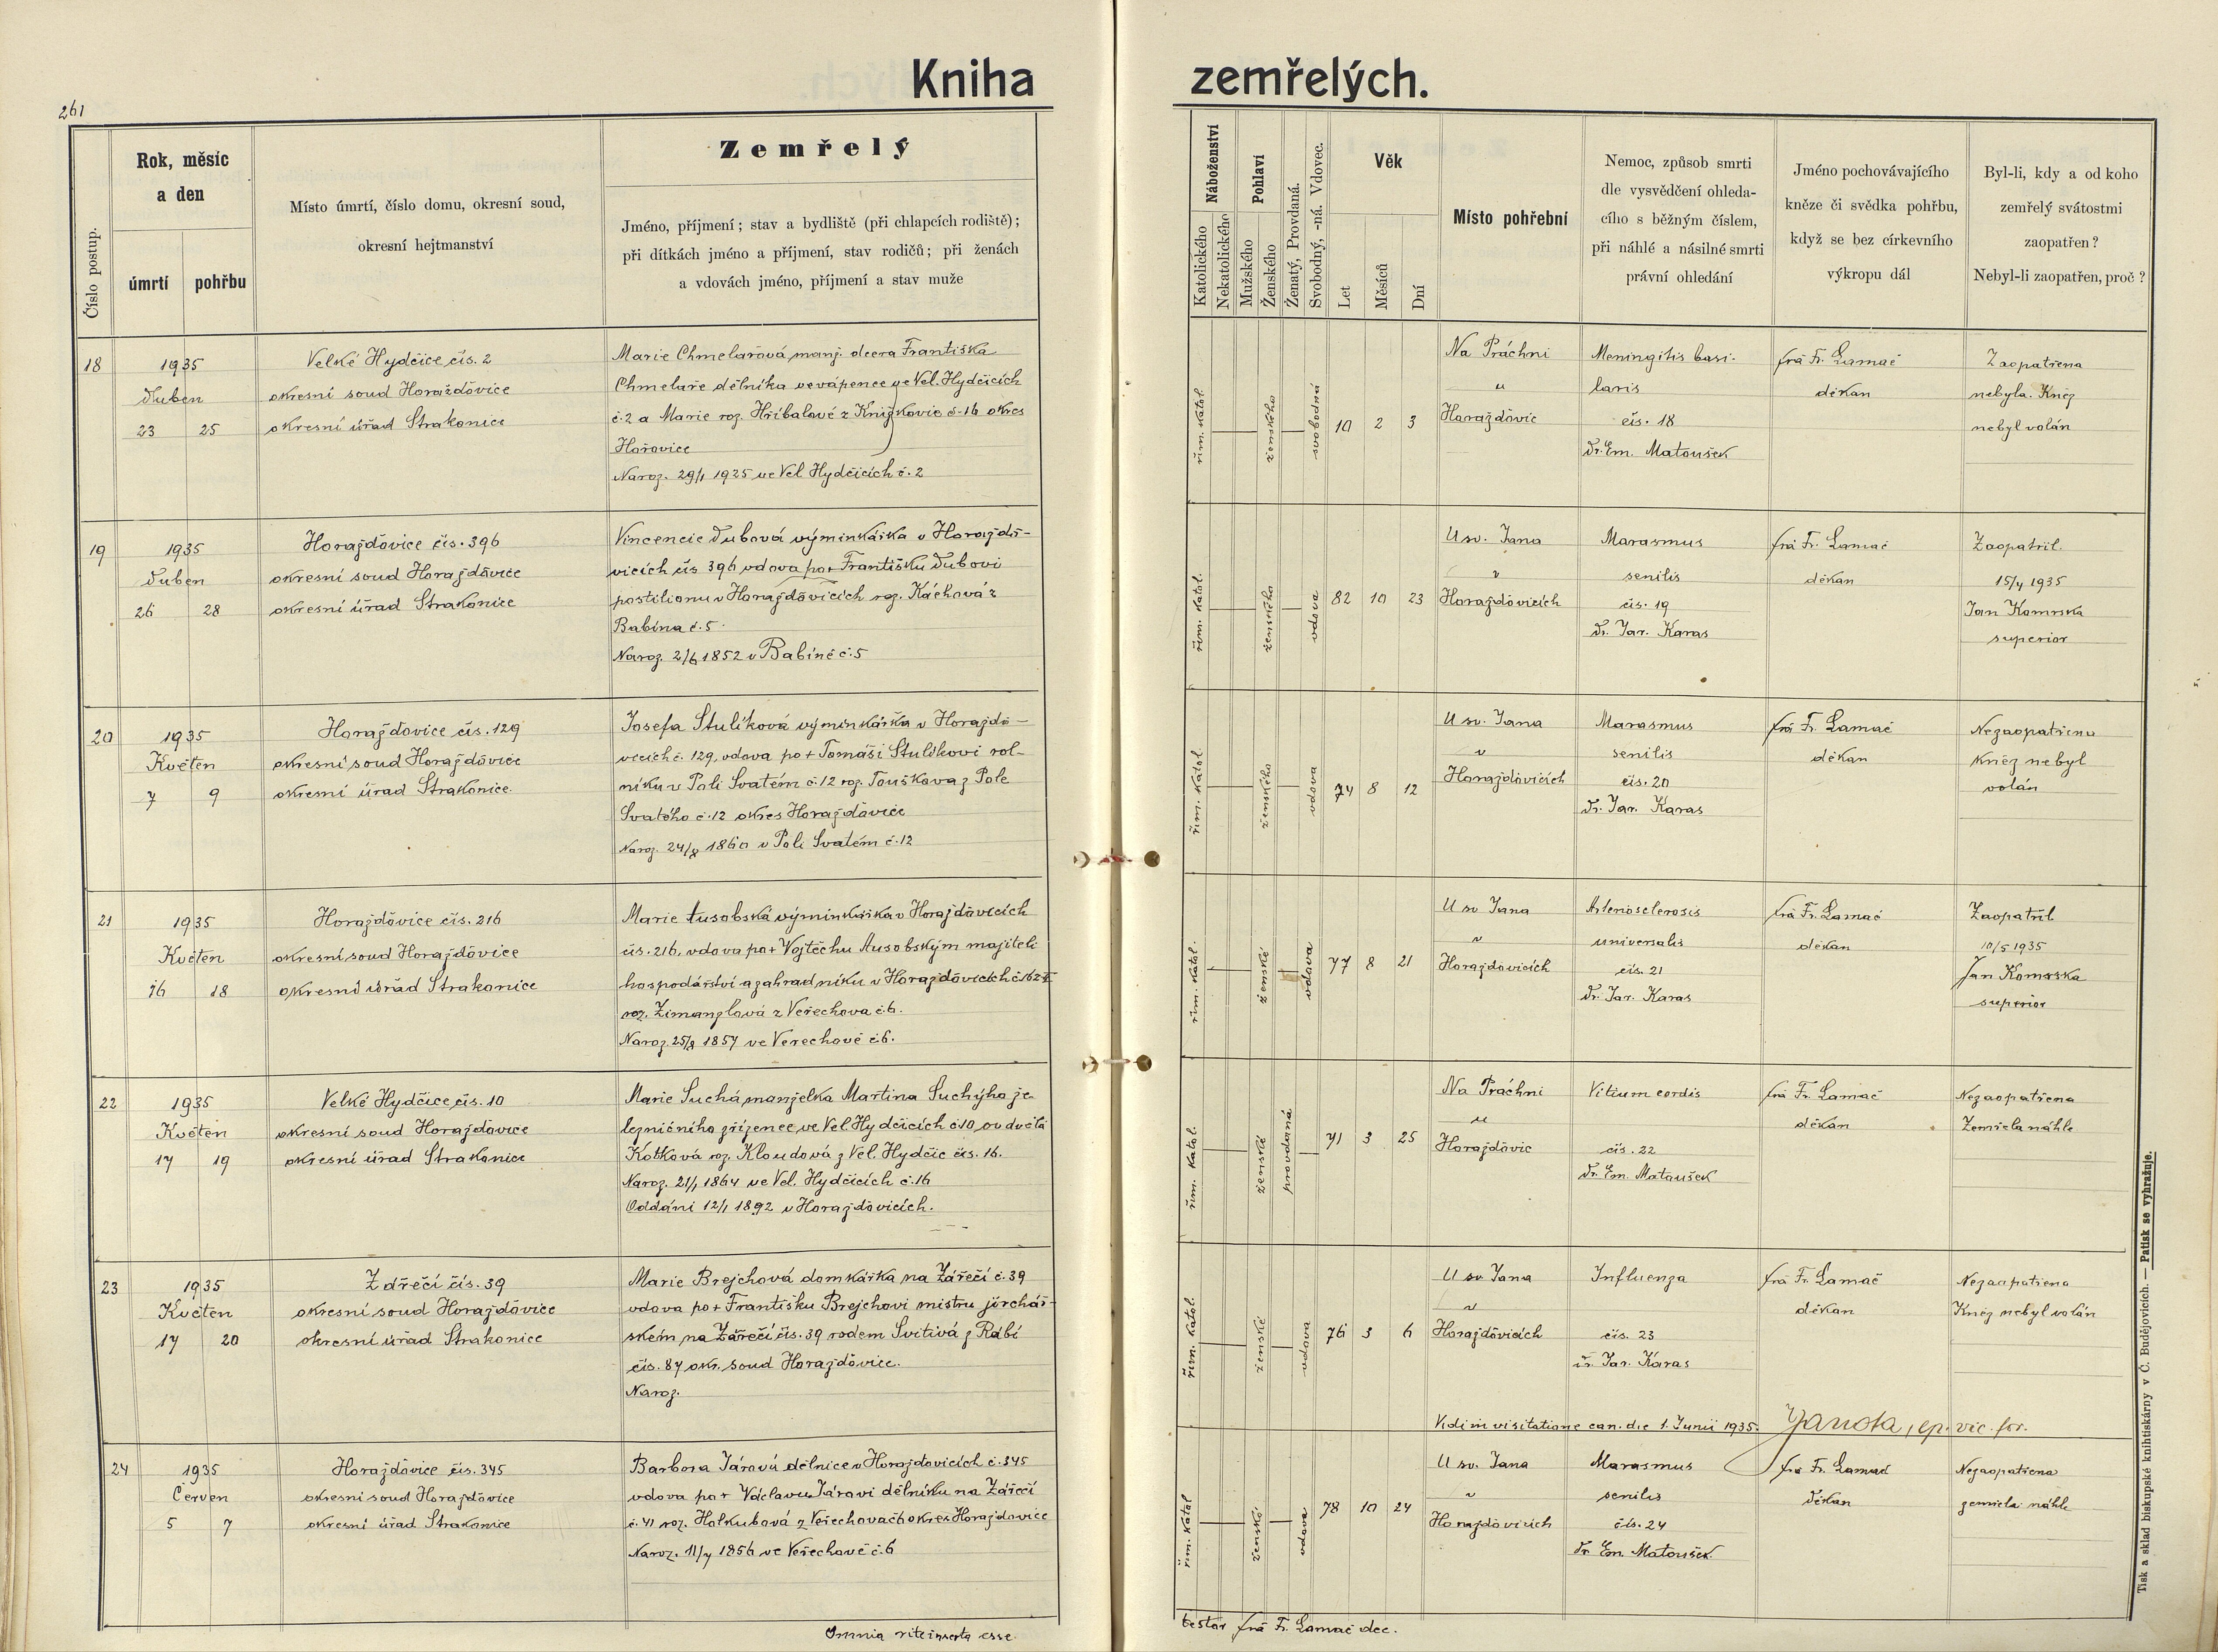 261
Kniha zemřelých.
Číslo postup.
Rok, měsíc
a den
úmrtí
pohřbu
Místo úmrtí, číslo domu, okresní soud,
okresní hejtmanství
Zemřelý
Jméno, příjmení; stav a bydliště (při chlapcích rodiště);
při dítkách jméno a příjmení, stav rodičů; při ženách
a vdovách jméno, příjmení a stav muže
Náboženství
Katolického
Nekatolického
Pohlaví
Mužského
Ženského
Ženatý, Provdaná.
Svobodný, -ná. Vdovec.
Věk
Let
Měsíců
Dní
Místo pohřební
Nemoc, způsob smrti
dle vysvědčení ohleda-
cího s běžným číslem,
při náhlé a násilné smrti
právní ohledání
Jméno pochovávajícího
kněze či svědka pohřbu,
když se bez církevního
výkropu dál
Byl-li, kdy a od koho
zemřelý svátostmi
zaopatřen?
Nebyl-li zaopatřen, proč?
18
1935
Duben
23 25
Velké Hydčice čís. 2
okresní soud Horažďovice
okresní úřad Strakonice
Marie Chmelařová manž. dcera Františka
Chmelaře dělníka ve vápence ve Vel. Hydčicích
č. 2 a Marie roz. Hříbalové z Knížkovic č. 16 okres
Hořovice
Naroz. 29/1 1925 ve Vel Hydčicích č. 2
řím. katol.
ženského
svobodná
10 2 3
Na Práchni
"
Horažďovic
Meningitis basi-
laris
čís. 18
Dr. Em. Matoušek
frá Fr. Lamač
děkan
Zaopatřena
nebyla. Kněz
nebyl volán
19
1935
Duben
26 28
Horažďovice čís. 396
okresní soud Horažďovice
okresní úřad Strakonice
Vincencie Dubová výminkářka v Horažďo-
vicích čís 396 vdova po + Františku Dubovi
postilionu v Horažďovicích roz. Káchová z
Babína č. 5.
Naroz. 2/6 1852 v Babíně č. 5
řím. katol.
ženského
vdova
82 10 23
U sv. Jana
"
Horažďovicích
Marasmus
senilis
čís. 19
Dr. Jar. Karas
frá Fr. Lamač
děkan
Zaopatřil
15/4 1935
Jan Komrska
superior
20
1935
Květen
7 9
Horažďovice čís. 129
okresní soud Horažďovice
okresní úřad Strakonice.
Josefa Stulíková výminkářka v Horažďo-
vicích č. 129, vdova po + Tomáši Stulíkovi rol-
níku v Poli Svatém č. 12 roz. Toušková z Pole
Svatého č. 12 okres Horažďovice
Naroz. 24/8 1860 v Poli Svatém č. 12
řím. katol.
ženského
vdova
74 8 12
U sv. Jana
"
Horažďovicích
Marasmus
senilis
čís. 20
Dr. Jar. Karas
frá Fr. Lamač
děkan
Nezaopatřena
Kněz nebyl
volán
21
1935
Květen
16 18
Horažďovice čís. 216
okresní soud Horažďovice
okresní úřad Strakonice
Marie Ausobská výminkářka v Horažďovicích
čís. 216, vdova po + Vojtěchu Ausobským majiteli
hospodářství a zahradníku v Horažďovicích č. 162 II
roz. Zimanglová z Veřechova č. 6.
Naroz. 25/8 1857 ve Veřechově č. 6.
řím. katol.
ženské
vdova
77 8 21
U sv Jana
"
Horažďovicích
Arteriosclerosis
universalis
čís. 21
Dr. Jar. Karas
frá Fr. Lamač
děkan
Zaopatřil
10/5 1935
Jan Komrska
superior
22
1935
Květen
17 19
Velké Hydčice čís. 10
okresní soud Horažďovice
okresní úřad Strakonice
Marie Suchá manželka Martina Suchýho že-
lezničního zřízence, ve Vel Hydčicích č 10, ovdovělá
Kotková roz. Kloudová z Vel. Hydčic čís. 16.
Naroz. 21/1 1864 ve Vel. Hydčicích č. 16
Oddáni 12/1 1892 v Horažďovicích.
řím. katol.
ženské
provdaná
71 3 25
Na Práchni
"
Horažďovic
Vitium cordis
čís. 22
Dr. Em. Matoušek
frá Fr. Lamač
děkan
Nezaopatřena
Zemřela náhle
23
1935
Květen
17 20
Zářečí čís. 39
okresní soud Horažďovice
okresní úřad Strakonice
Marie Brejchová domkářka na Zářečí č. 39
vdova po + Františku Brejchovi mistru jirchář-
ském na Zářečí čís. 39 rodem Svitivá z Rábí
čís. 87 okr. soud Horažďovice.
Naroz.
řím. katol.
ženské
vdova
76 3 6
U sv Jana
"
Horažďovicích
Influenza
čís. 23
Dr. Jar. Karas
frá Fr. Lamač
děkan
Nezaopatřena
Kněz nebyl volán
Vidi in visitatione can. die 1. Junii 1935. Janota, ep. vic. for.
24
1935
Červen
5 7
Horažďovice čís. 345
okresní soud Horažďovice
okresní úřad Strakonice
Barbora Járová dělnice v Horažďovicích č. 345
vdova po + Václavu Járovi dělníku na Zářečí
č. 41 roz. Holkubová z Veřechova č 6 okres Horažďovice
Naroz. 11/7 1856 ve Veřechově č. 6
řím. katol
ženské
vdova
78 10 24
U sv. Jana
"
Horažďovicích
Marasmus
senilis
čís. 24
Dr. Em. Matoušek
frá Fr. Lamač
děkan
Nezaopatřena
zemřela náhle
Omnia rite inserta esse
testor frá Fr. Lamač dec.
Tisk a sklad biskupské knihtiskárny v Č. Budějovicích. — Patisk se vyhražuje.